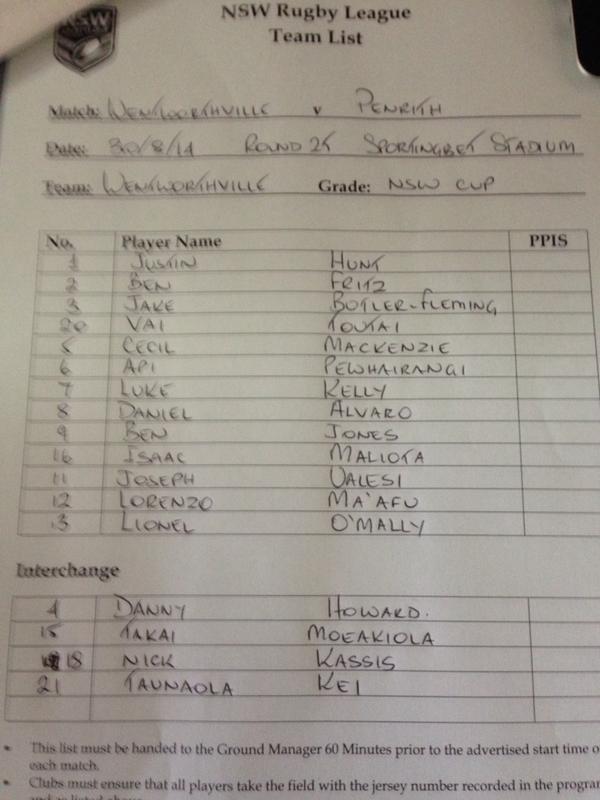 NSW
NSW Rugby League
Team List
Match: WENTWORTHVILLE v PENRITH
Date: 30/8/14 ROUND 25 SPORTINGBET STADIUM
Team: WENTWORTHVILLE Grade: NSW CUP
No. Player Name PPIS
1 JUSTIN HUNT
2 BEN FRITZ
3 JAKE BUTLER-FLEMING
20 VAI TOUTAI
5 CECIL MACKENZIE
6 API PEWHAIRANGI
7 LUKE KELLY
8 DANIEL ALVARO
9 BEN JONES
16 ISAAC MALIOTA
11 JOSEPH UALESI
12 LORENZO MA'AFU
13 LIONEL O'MALLY
Interchange
4 DANNY HOWARD.
15 TAKAI MOEAKIOLA
18 NICK KASSIS
21 TAUNAOLA KEI
• This list must be handed to the Ground Manager 60 Minutes prior to the advertised start time o
each match.
• Clubs must ensure that all players take the field with the jersey number recorded in the program